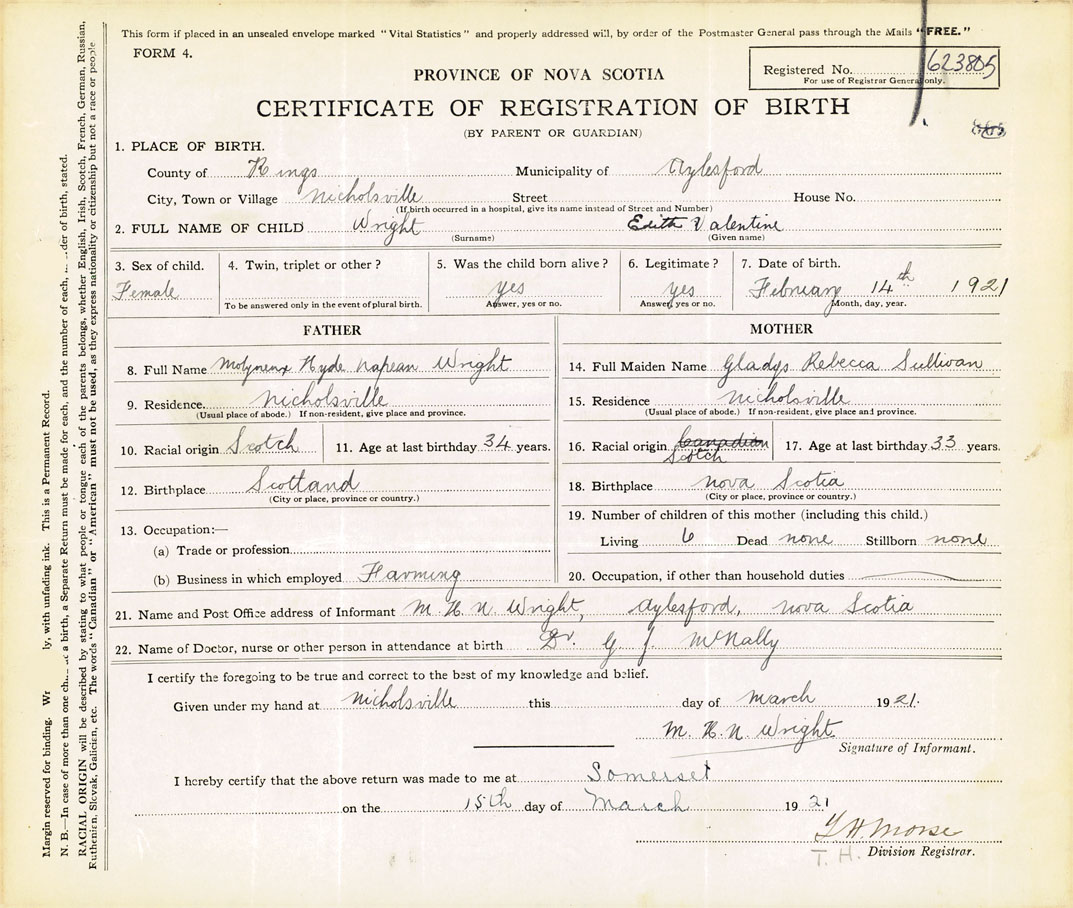 This form if placed in an unsealed envelope marked "Vital Statistics" and properly addressed will, by order of the Postmaster General pass through the Mails "FREE."
FORM 4.
Registered No. 623805
For use of Registrar General only.
PROVINCE OF NOVA SCOTIA
CERTIFICATE OF REGISTRATION OF BIRTH
(BY PARENT OR GUARDIAN)
1. PLACE OF BIRTH.
County of Kings Municipality of Aylesford
City, Town or Village Nicholsville Street House No.
(If birth occurred in a hospital, give its name instead of Street and Number)
2. FULL NAME OF CHILD Wright Edith Valentine
(Surname) (Given name)
3. Sex of child. 4. Twin, triplet or other? 5. Was the child born alive? 6. Legitimate? 7. Date of birth.
Female yes yes February 14th 1921
To be answered only in the event of plural birth. Answer, yes or no. Answer, yes or no. Month, day, year.
FATHER
8. Full Name Molyneux Hyde Napean Wright
9. Residence Nicholsville
(Usual place of abode.) If non-resident, give place and province.
10. Racial origin Scotch 11. Age at last birthday 34 years.
12. Birthplace Scotland
(City or place, province or country.)
13. Occupation:—
(a) Trade or profession
(b) Business in which employed Farming
MOTHER
14. Full Maiden Name Gladys Rebecca Sullivan
15. Residence Nicholsville
(Usual place of abode.) If non-resident, give place and province.
16. Racial origin Canadian 17. Age at last birthday 33 years.
Scotch
18. Birthplace Nova Scotia
(City or place, province or country.)
19. Number of children of this mother (including this child.)
Living 6 Dead none Stillborn none
20. Occupation, if other than household duties
21. Name and Post Office address of Informant M. H. N. Wright, Aylesford, Nova Scotia
22. Name of Doctor, nurse or other person in attendance at birth Dr. G. J. McNally
I certify the foregoing to be true and correct to the best of my knowledge and belief.
Given under my hand at Nicholsville this day of March 1921.
M. H. N. Wright
Signature of Informant.
I hereby certify that the above return was made to me at Somerset
on the 15th day of March 1921
T. H. Morse
T. H. Division Registrar.
Margin reserved for binding. ly, with unfading ink. This is a Permanent Record.
N. B.—In case of more than one a birth, a Separate Return must be made for each, and the number of each, order of birth, stated.
RACIAL ORIGIN will be described by stating to what people or tongue each of the parents belongs, whether English, Irish, Scotch, French, German, Russian,
Ruthenian, Slovak, Galician, etc. The words "Canadian" or "American" must not be used, as they express nationality or citizenship but not a race or people